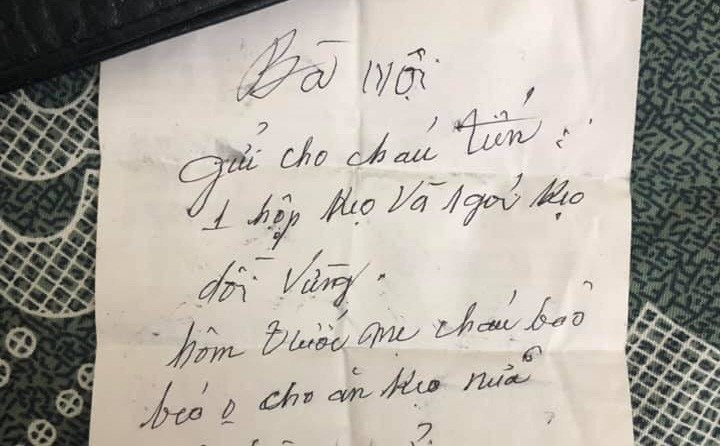 Bà Nội
gửi cho cháu tiến :
1 hộp kẹo và 1 gói kẹo
dồi vừng.
hôm trước mẹ cháu bảo
béo o cho ăn kẹo nữa